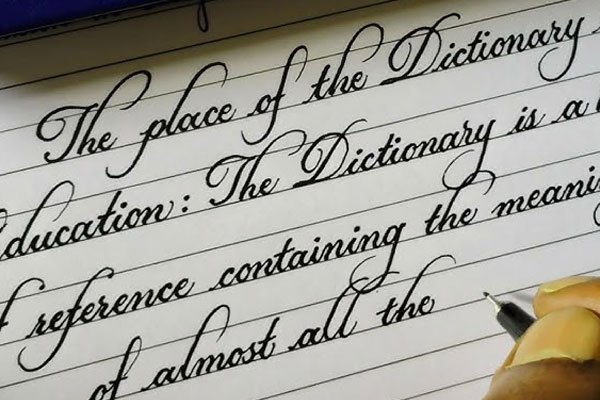 The place of the Dictionary
Education: The Dictionary is a
reference containing the
of almost all the